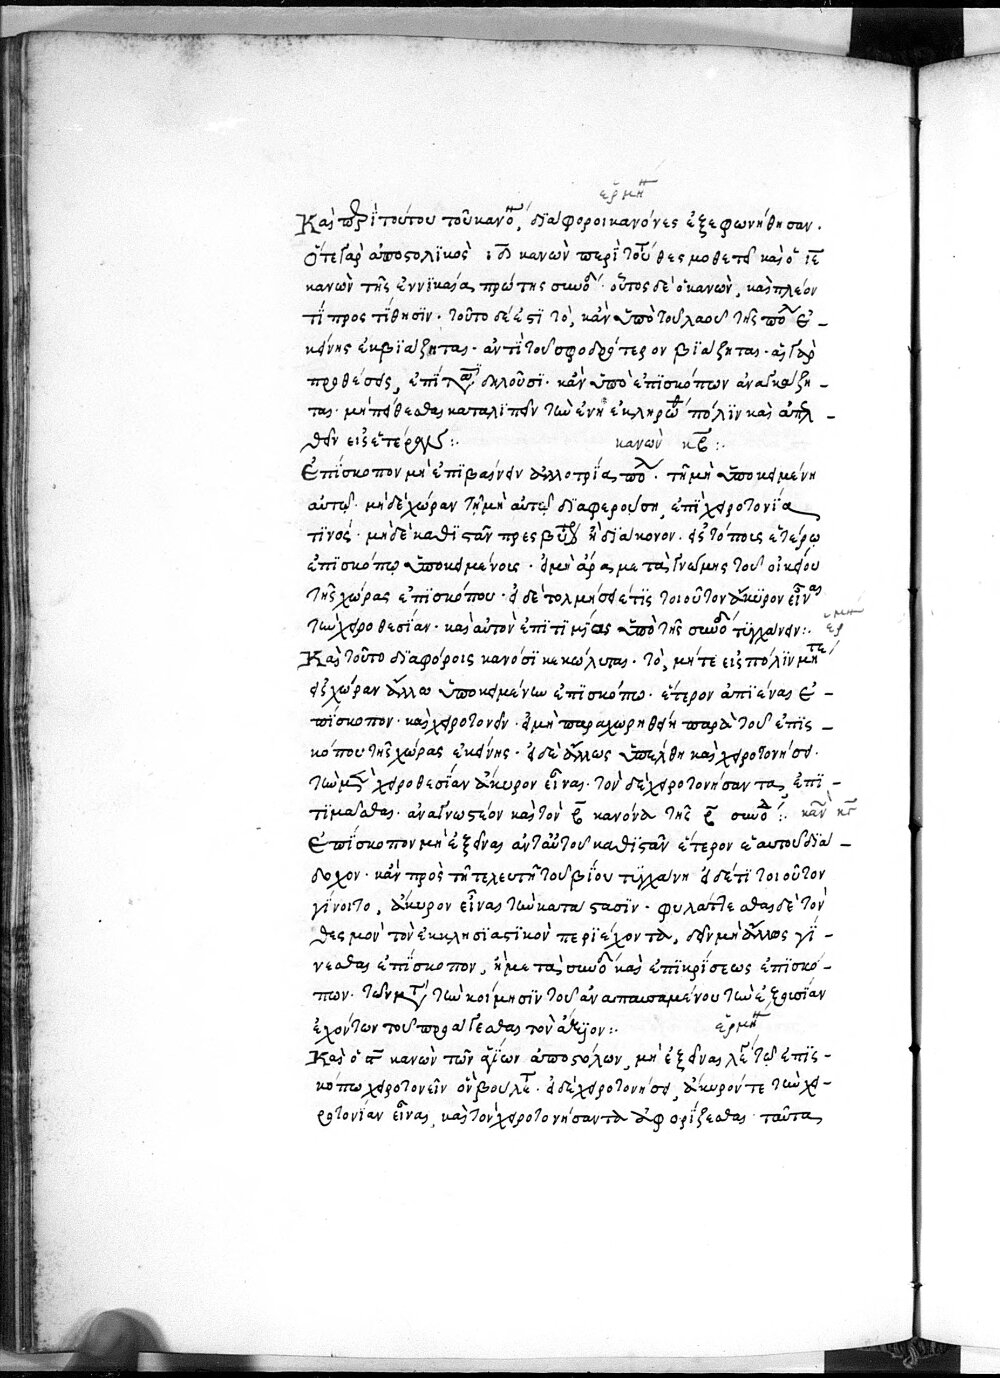 ἑρμη
Καὶ περὶ τούτου τοῦ κανό, διάφοροι κανόνες ἐξεφωνήθησαν.
ὅτε γὰρ ἀποστολϊκὸς ιδ κανὼν περὶ τού θεσμοθετεῖ καὶ ὁ ιε
κανὼν τῆς ἐν νικαία πρώτης συνό· οὗτος δὲ ὁ κανὼν, καὶ πλέον
τί προστίθησϊν· τοῦτο δέ ἐστϊ τὸ, κἂν ὑπὸ τοῦ λαοῦ τῆς πό ἐ-
κείνης ἐκβϊάζηται· ἀντὶ τοῦ σφοδρότερον βϊάζηται· αἱ γὰρ
προθέσεις, ἐπίτα δηλοῦσϊ· κἂν ὑπὸ ἐπϊσκόπων ἀναγκάζη-
ται· μὴ πείθεσθαι καταλϊπεῖν τὴν ἐν ἧ ἐκληρώ πόλϊν καὶ ἀπελ-
θεῖν εἰς ἑτέραν:
κανὼν κβ:
Ἐπίσκοπον μὴ ἐπϊβαίνειν ἀλλοτρία πό· τῆ μὴ ὑποκειμένη
αὐτῷ· μηδὲ χώραν τῆ μὴ αὐτῷ διαφερούση, ἐπὶ χειροτονία
τϊνός· μηδὲ καθϊστᾶν πρεσβύ ἢ δϊάκονον· εἰς τόπους ἑτέρω
ἐπϊσκόπω ὑποκειμένοις· εἰ μὴ ἄρα μετὰ γνώμης τοῦ οἰκείου
τῆς χώρας ἐπϊσκόπου· εἰ δὲ τολμήσειέ τϊς τοιοῦτον ἄκυρον εἶναι
τὴν χειροθεσίαν· καὶ αὐτὸν ἐπϊτϊμίας ὑπὸ τῆς συνό τυγχάνειν:
ἑρμη
Καὶ τοῦτο διαφόροις κανόσϊ κεκώλυται· τὸ, μήτε εἰς πόλϊν μήτε
εἰς χώραν ἄλλω ὑποκειμένων ἐπϊσκόπω· ἕτερον ἀπϊέναι ἐ-
πίσκοπον· καὶ χειροτονεῖν· εἰ μὴ παραχωρηθείη παρὰ τοῦ ἐπϊσ-
κόπου τῆς χώρας ἐκείνης· εἰ δὲ ἄλλως ὑπέλθη καὶ χειροτονήσει·
τὴν μὲν χειροθεσίαν ἄκυρον εἶναι· τὸν δὲ χειροτονήσαντα, ἐπϊ-
τϊμᾶσθαι· ἀναγνωστέον καὶ τὸν β κανόνα τῆς β συνόδ: κανὼ κγ
Ἐπΐσκοπον μὴ ἐξεῖναι ἀντ' αὐτοῦ καθϊστᾶν ἕτερον ἑαυτοῦ δϊά-
δοχον· κἂν πρὸς τῆ τελευτῆ τοῦ βίου τυγχάνη εἰ δέ τϊ τοιοῦτον
γίνοιτο, ἄκυρον εἶναι τὴν κατάστασϊν· φυλάττεσθαι δὲ τὸν
θεσμὸν τὸν ἐκκλησϊαστϊκὸν περϊέχοντα, δεῖν μὴ ἄλλως γί-
νεσθαι ἐπΐσκοπον, ἢ μετὰ συνό καὶ ἐπϊκρίσεως ἐπϊσκό-
πων· τῶν μετὰ τὴν κοίμησϊν τοῦ ἀναπαυσαμένου τὴν ἐξουσίαν
ἐχόντων τοῦ προάγεσθαι τὸν ἄξϊον:
ἑρμη
Καὶ ὁ ο κανὼν τῶν ἁγίων ἀποστόλων, μὴ ἐξεῖναι λέγ τῷ ἐπϊσ-
κόπω χειροτονεῖν ὃν βούλε· εἰ δὲ χειροτονήσει, ἄκυρόν τε τὴν χει-
ροτονίαν εἶναι, καὶ τὸν χειροτονήσαντα ἀφορίζεσθαι· ταῦτα